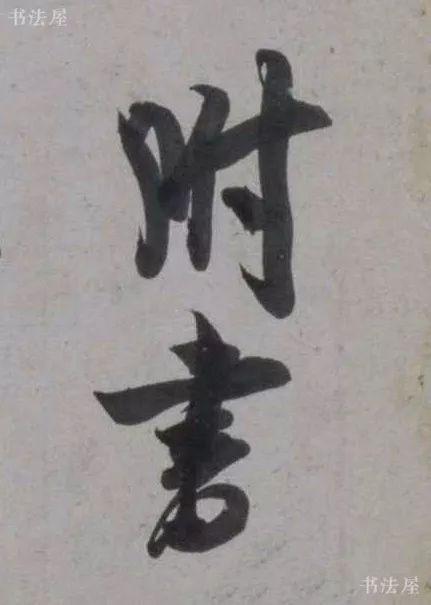 书法屋
附書
书法屋